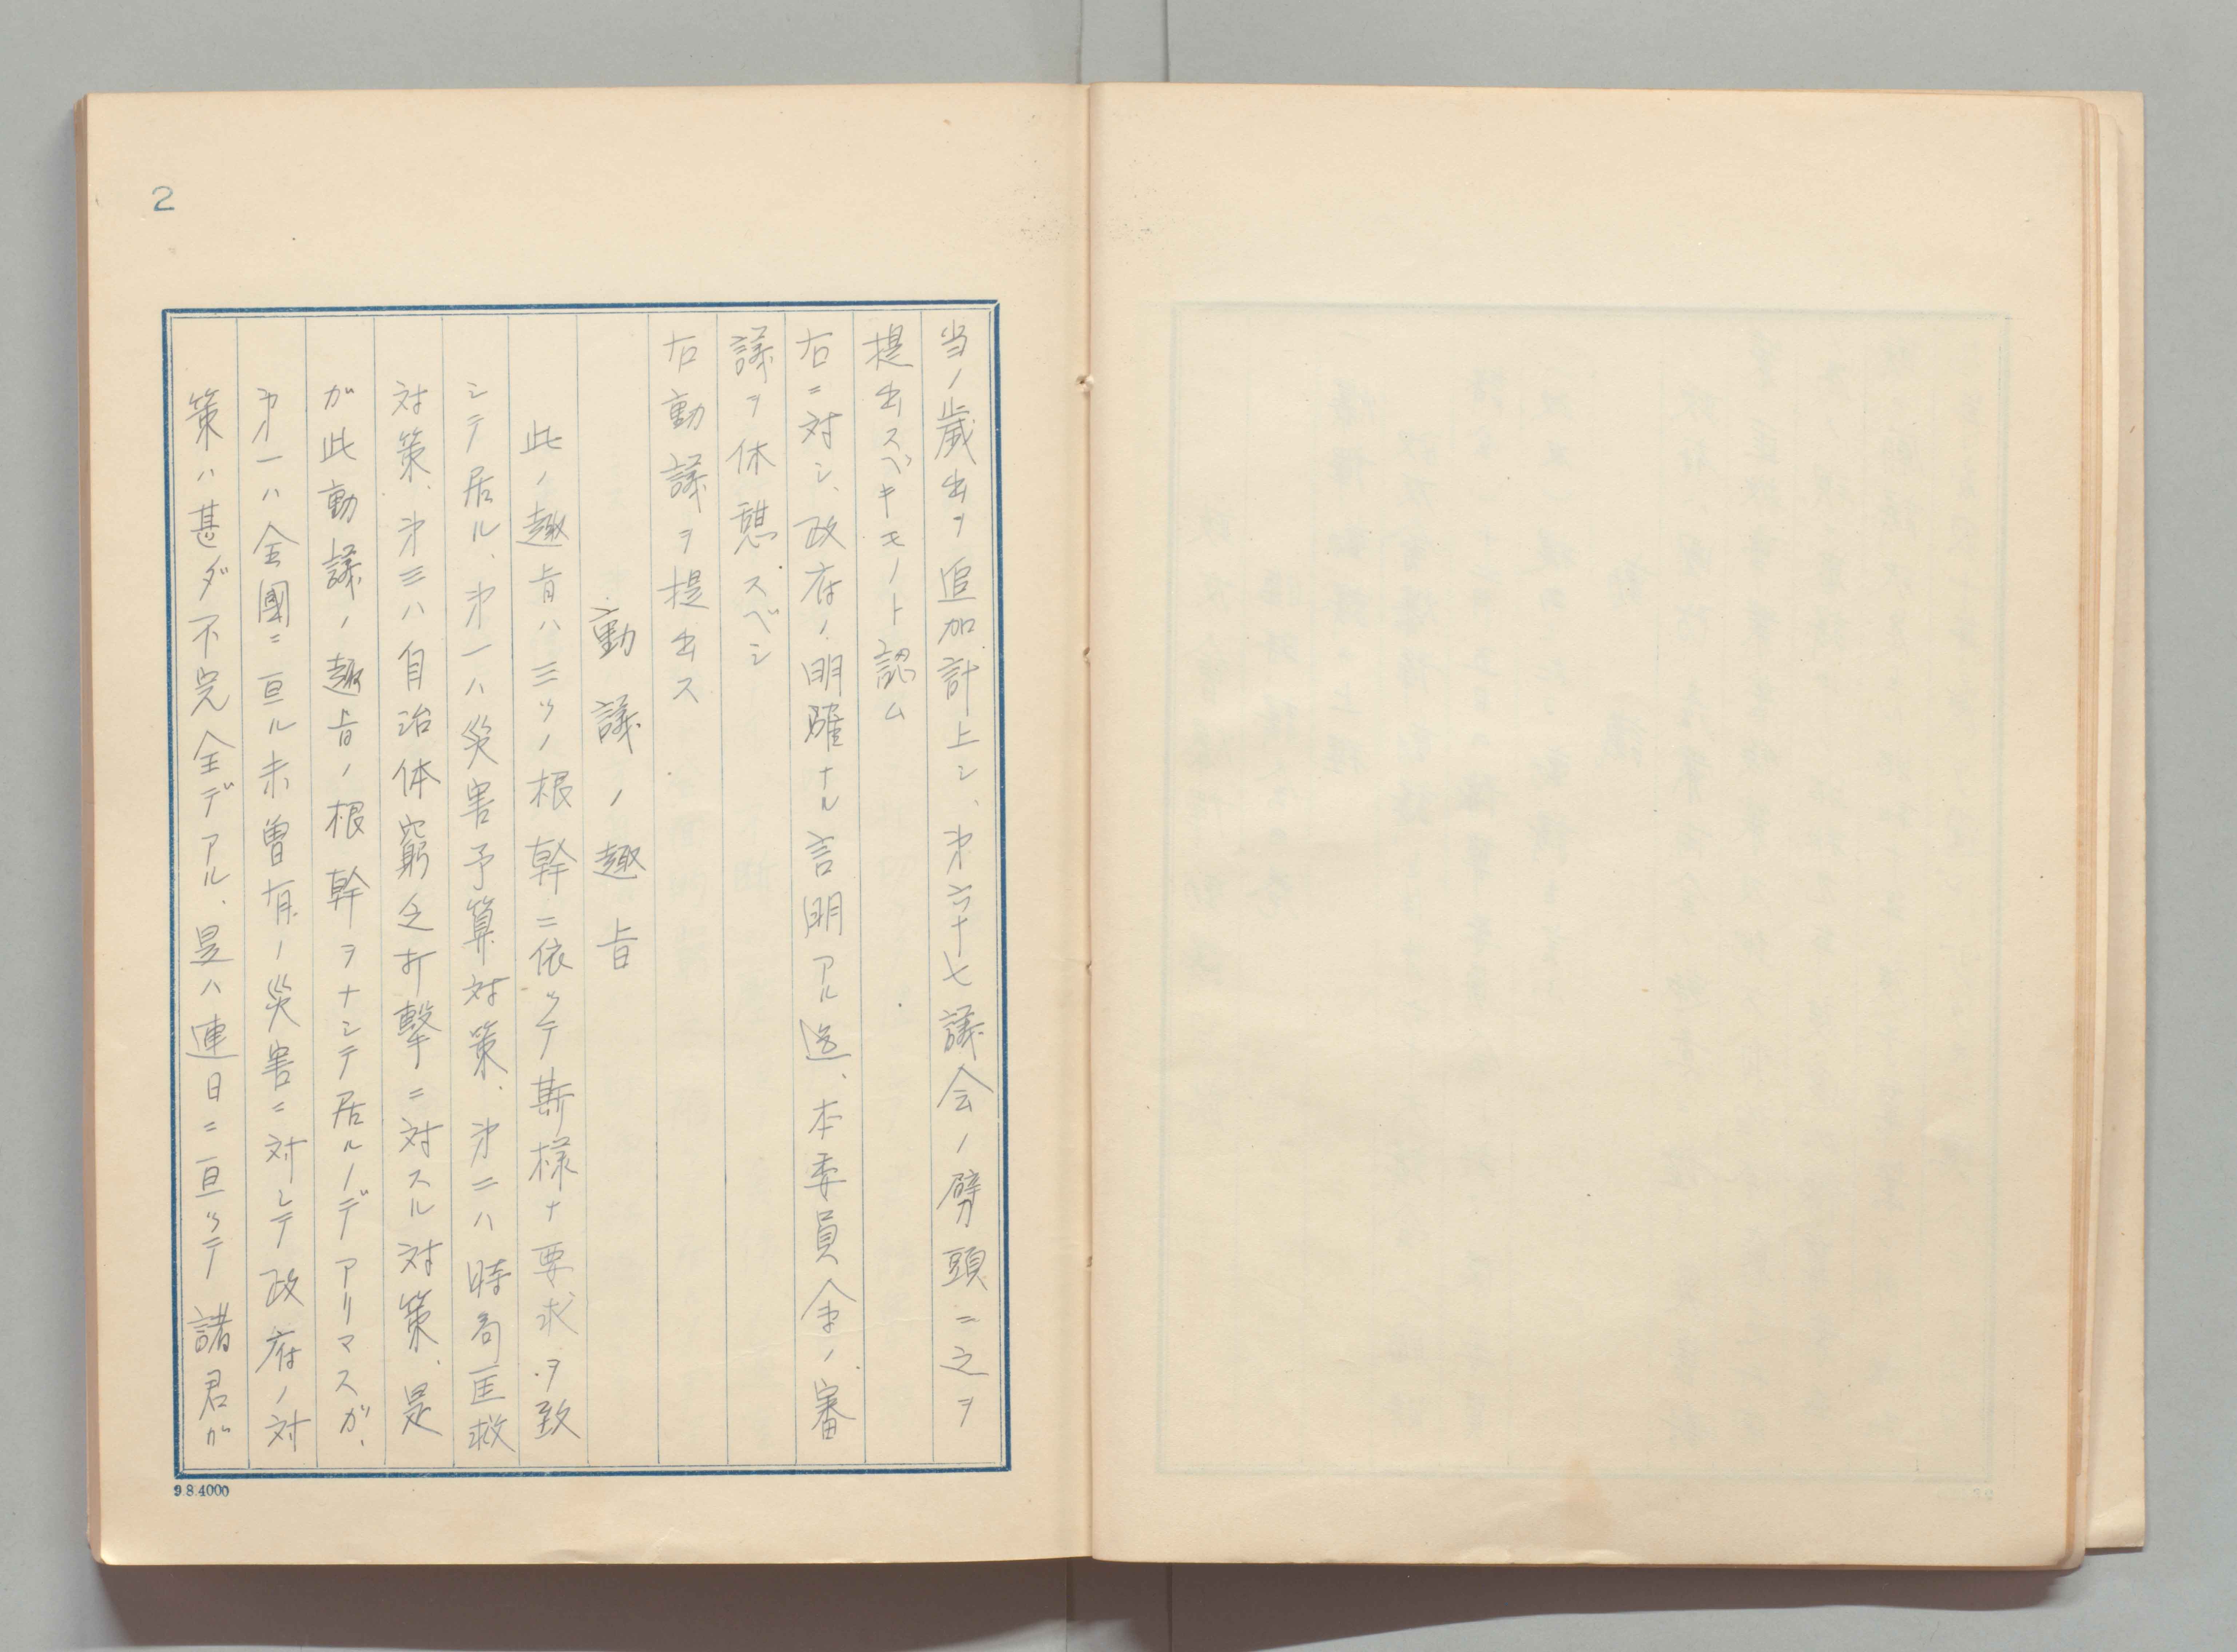 2
当ノ歳出ヲ追加計上シ、才六十七議会ノ劈頭ニ之ヲ
提出スベキモノト認ム
右ニ対シ、政府ノ明確ナル言明アル迄、本委員会ノ審
議ヲ休憩スベシ
右動議ヲ提出ス
動議ノ趣旨
此ノ趣旨ハ三ツノ根幹ニ依ツテ斯様ナ要求ヲ致
シテ居ル、才一ハ災害予算対策、才二ハ時局匡救
対策、才三ハ自治体窮乏打撃ニ対スル対策、是
ガ此動議ノ趣旨ノ根幹ヲナシテ居ルノデアリマスガ、
才一ハ全國ニ亘ル未曽有ノ災害ニ対シテ政府ノ対
策ハ甚ダ不完全デアル、是ハ連日ニ亘ツテ諸君ガ
9.8.4000